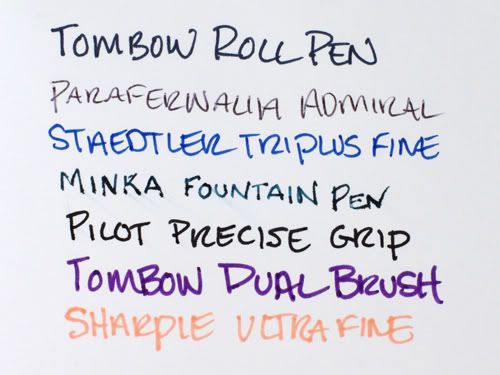 TOMBOW ROLL PEN
PARAFERNALIA ADMIRAL
STAEDTLER TRIPLUS FINE
MINKA FOUNTAIN PEN
PILOT PRECISE GRIP
TOMBOW DUAL BRUSH
SHARPIE ULTRA FINE